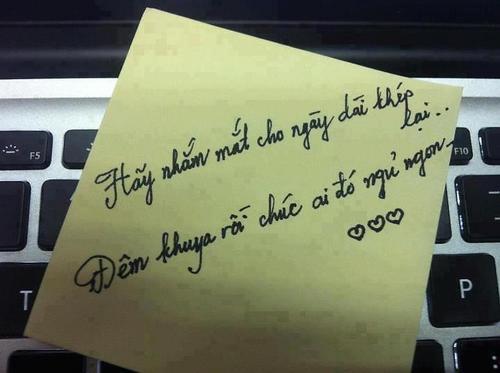 Hãy nhắm mắt cho ngày dài khép
lại..
Đêm khuya rồi chúc ai đó ngủ ngon
♡♡♡
F5
F10
T
P